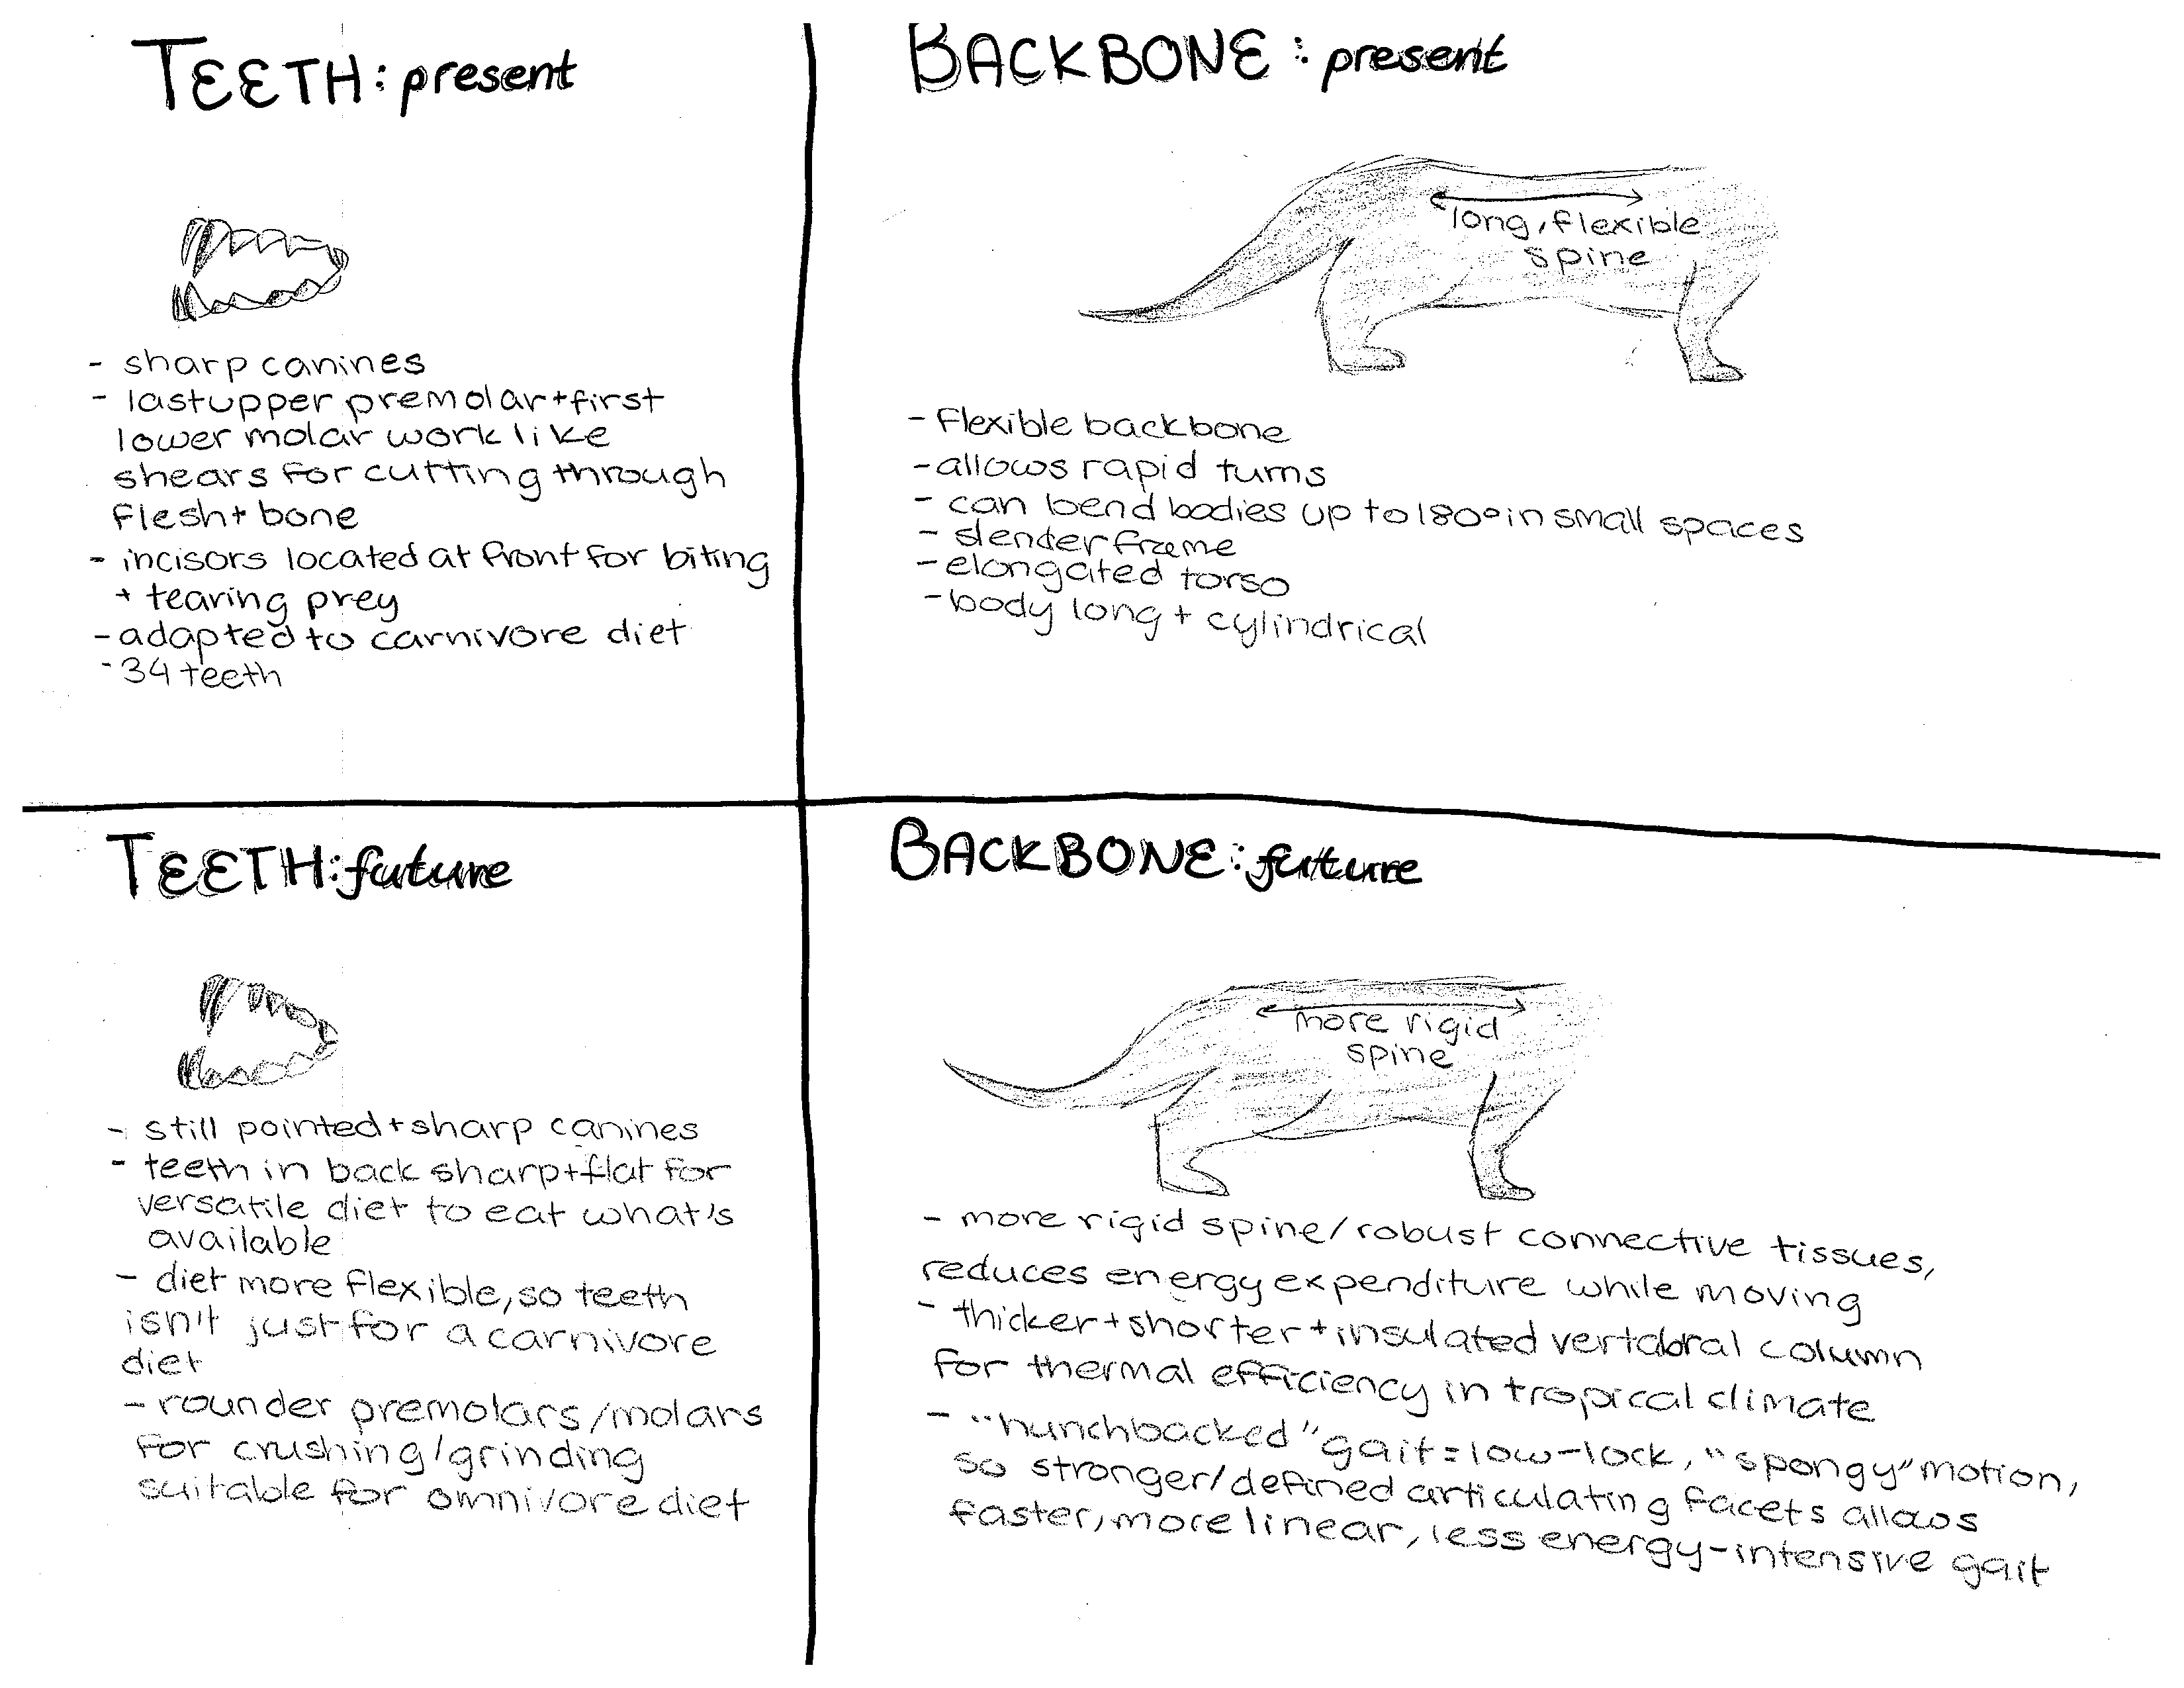 TEETH: present
- sharp canines
- last upper premolar + first
lower molar work like
shears for cutting through
flesh + bone
- incisors located at front for biting
+ tearing prey
- adapted to carnivore diet
- 34 teeth
BACKBONE: present
long, flexible
spine
- Flexible backbone
- allows rapid turns
- can bend bodies up to 180° in small spaces
- slender frame
- elongated torso
- body long + cylindrical
TEETH: future
- still pointed + sharp canines
- teeth in back sharp + flat for
versatile diet to eat what's
available
- diet more flexible, so teeth
isn't just for a carnivore
diet
- rounder premolars/molars
for crushing/grinding
suitable for omnivore diet
BACKBONE: future
more rigid
spine
- more rigid spine/robust connective tissues,
reduces energy expenditure while moving
- thicker + shorter + insulated vertabral column
for thermal efficiency in tropical climate
- "hunchbacked" gait = low-lock, "spongy" motion,
so stronger/defined articulating facets allows
faster, more linear, less energy-intensive gait